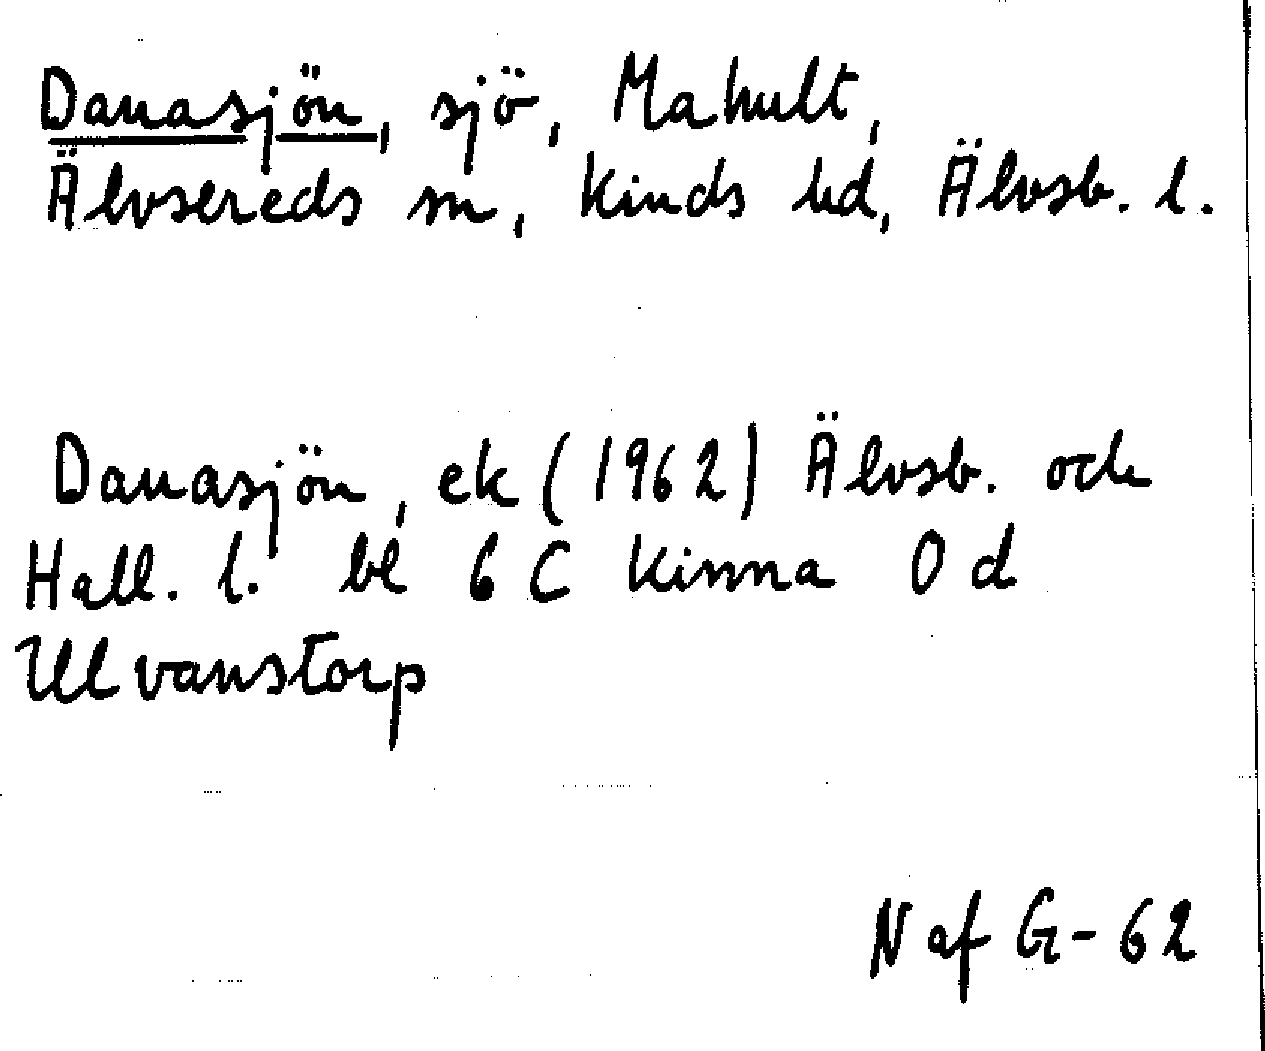 Danasjön, sjö, Mahult,
Älvsereds sn, Kinds hd, Älvsb. l.
Danasjön, ek (1962) Älvsb. och
Hall. l. bl 6 C Kinna 0 d
Ulvanstorp
N af G-62